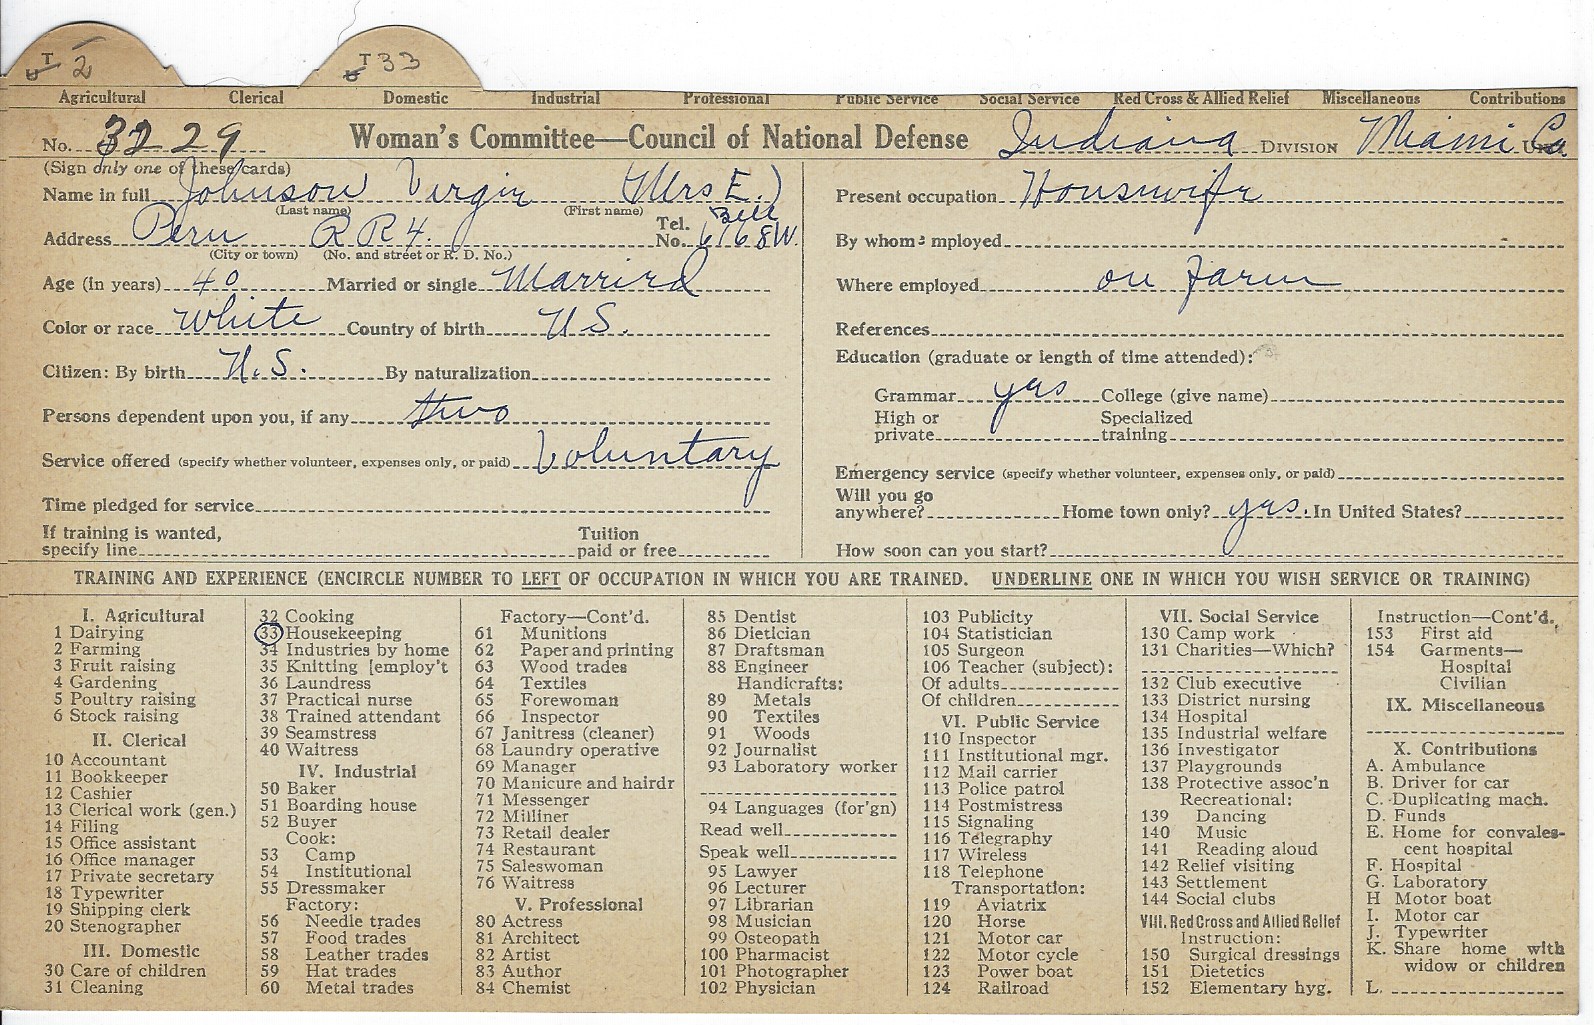 T 2
T 33
Agricultural Clerical Domestic Industrial Professional Public Service Social Service Red Cross & Allied Relief Miscellaneous Contributions
No. 3229 Woman's Committee—Council of National Defense Indiana DIVISION Miami Co.
(Sign only one of these cards)
Name in full Johnson Virgie (Mrs E.)
(Last name) (First name)
Address Peru RR4. Tel. No. Bell 6168W.
(City or town) (No. and street or R. D. No.)
Age (in years) 40 Married or single Married
Color or race White Country of birth U.S.
Citizen: By birth U.S. By naturalization
Persons dependent upon you, if any two
Service offered (specify whether volunteer, expenses only, or paid) Voluntary
Time pledged for service
If training is wanted, specify line Tuition paid or free
Present occupation Housewife
By whom employed
Where employed on farm
References
Education (graduate or length of time attended):
Grammar yes College (give name)
High or private Specialized training
Emergency service (specify whether volunteer, expenses only, or paid)
Will you go anywhere? Home town only? yes. In United States?
How soon can you start?
TRAINING AND EXPERIENCE (ENCIRCLE NUMBER TO LEFT OF OCCUPATION IN WHICH YOU ARE TRAINED. UNDERLINE ONE IN WHICH YOU WISH SERVICE OR TRAINING)
I. Agricultural
1 Dairying
2 Farming
3 Fruit raising
4 Gardening
5 Poultry raising
6 Stock raising
II. Clerical
10 Accountant
11 Bookkeeper
12 Cashier
13 Clerical work (gen.)
14 Filing
15 Office assistant
16 Office manager
17 Private secretary
18 Typewriter
19 Shipping clerk
20 Stenographer
III. Domestic
30 Care of children
31 Cleaning
32 Cooking
33 Housekeeping
34 Industries by home
35 Knitting [employ't
36 Laundress
37 Practical nurse
38 Trained attendant
39 Seamstress
40 Waitress
IV. Industrial
50 Baker
51 Boarding house
52 Buyer
Cook:
53 Camp
54 Institutional
55 Dressmaker
Factory:
56 Needle trades
57 Food trades
58 Leather trades
59 Hat trades
60 Metal trades
Factory—Cont'd.
61 Munitions
62 Paper and printing
63 Wood trades
64 Textiles
65 Forewoman
66 Inspector
67 Janitress (cleaner)
68 Laundry operative
69 Manager
70 Manicure and hairdr
71 Messenger
72 Milliner
73 Retail dealer
74 Restaurant
75 Saleswoman
76 Waitress
V. Professional
80 Actress
81 Architect
82 Artist
83 Author
84 Chemist
85 Dentist
86 Dietician
87 Draftsman
88 Engineer
Handicrafts:
89 Metals
90 Textiles
91 Woods
92 Journalist
93 Laboratory worker
94 Languages (for'gn)
Read well
Speak well
95 Lawyer
96 Lecturer
97 Librarian
98 Musician
99 Osteopath
100 Pharmacist
101 Photographer
102 Physician
103 Publicity
104 Statistician
105 Surgeon
106 Teacher (subject):
Of adults
Of children
VI. Public Service
110 Inspector
111 Institutional mgr.
112 Mail carrier
113 Police patrol
114 Postmistress
115 Signaling
116 Telegraphy
117 Wireless
118 Telephone
Transportation:
119 Aviatrix
120 Horse
121 Motor car
122 Motor cycle
123 Power boat
124 Railroad
VII. Social Service
130 Camp work
131 Charities—Which?
132 Club executive
133 District nursing
134 Hospital
135 Industrial welfare
136 Investigator
137 Playgrounds
138 Protective assoc'n
Recreational:
139 Dancing
140 Music
141 Reading aloud
142 Relief visiting
143 Settlement
144 Social clubs
VIII. Red Cross and Allied Relief
Instruction:
150 Surgical dressings
151 Dietetics
152 Elementary hyg.
Instruction—Cont'd.
153 First aid
154 Garments—
Hospital
Civilian
IX. Miscellaneous
X. Contributions
A. Ambulance
B. Driver for car
C. Duplicating mach.
D. Funds
E. Home for convales-
cent hospital
F. Hospital
G. Laboratory
H Motor boat
I. Motor car
J. Typewriter
K. Share home with
widow or children
L.